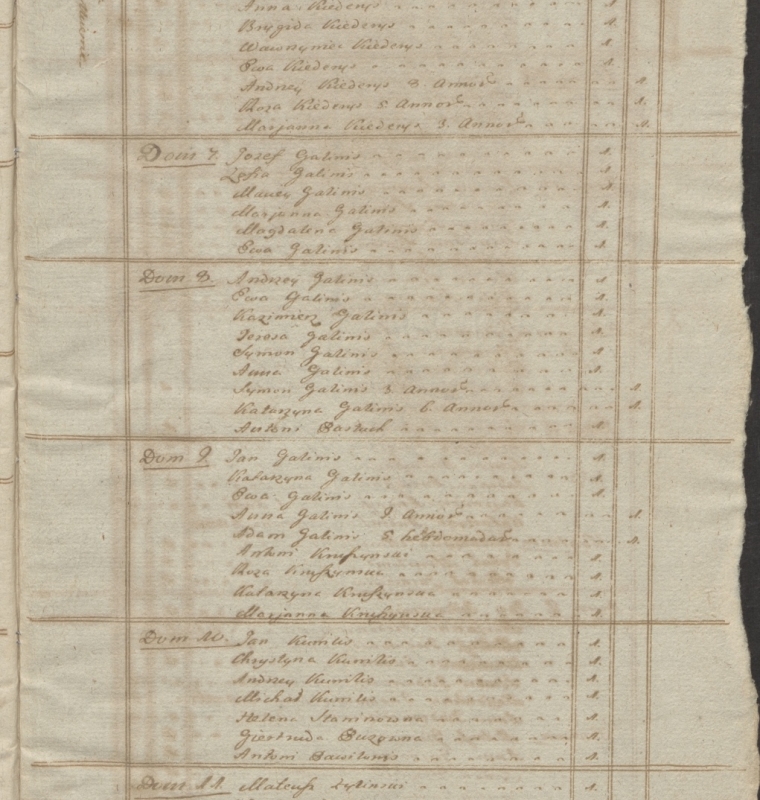 Anna Kiedenys 1.
Brygida Kiedenys 1.
Wawrzyniec Kiedenys 1.
Ewa Kiedenys 1.
Andrzey Kiedenys 8 Annor 1.
Roza Kiedenys 5 Annor 1.
Marjanna Kiedenys 3. Annor 1.
Dom 7. Jozef Galinis 1.
Zofia Galinis 1.
Maciey Galinis 1.
Marjanna Galinis 1.
Magdalena Galinis 1.
Ewa Galinis 1.
Dom 8. Andrzey Galinis 1.
Ewa Galinis 1.
Kazimierz Galinis 1.
Teresa Galinis 1.
Symon Galinis 1.
Anna Galinis 1.
Symon Galinis 8 Annor 1.
Katarzyna Galinis 6 Annor 1.
Antoni 1.
Dom 9. Jan Galinis 1.
Katarzyna Galinis 1.
Ewa Galinis 1.
Anna Galinis Annor 1.
Adam Galinis 5 hebdomadar 1.
Antoni Kruszynski 1.
Roza Kruszynska 1.
Katarzyna Kruszynska 1.
Marjanna Kruszynska 1.
Dom 10. Jan Kunilis 1.
Chrystyna Kunilis 1.
Andrzey Kunilis 1.
Michał Kunilis 1.
Helena 1.
Giertruda 1.
Antoni 1.
Dom 11. Mateusz 1.